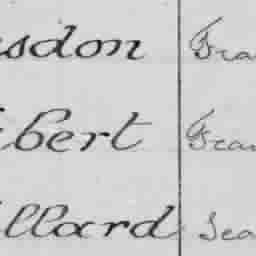 sdon Fra
bert Fran
llard Sea